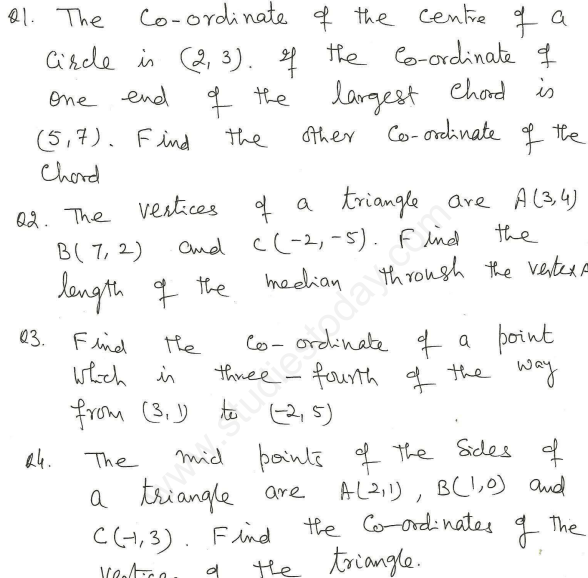 Q1. The Co-ordinate of the centre of a
Circle is (2, 3). If the Co-ordinate of
one end of the largest Chord is
(5,7). Find the other Co-ordinate of the
Chord
Q2. The vertices of a triangle are A(3,4)
B(7,2) and C(-2,-5). Find the
length of the median through the vertex A
Q3. Find the Co-ordinate of a point
which is three-fourth of the way
from (3,1) to (-2,5)
Q4. The mid points of the Sides of
a triangle are A(2,1), B(1,0) and
C(-1,3). Find the Co-ordinates of the
of the triangle.
www.studiestoday.com